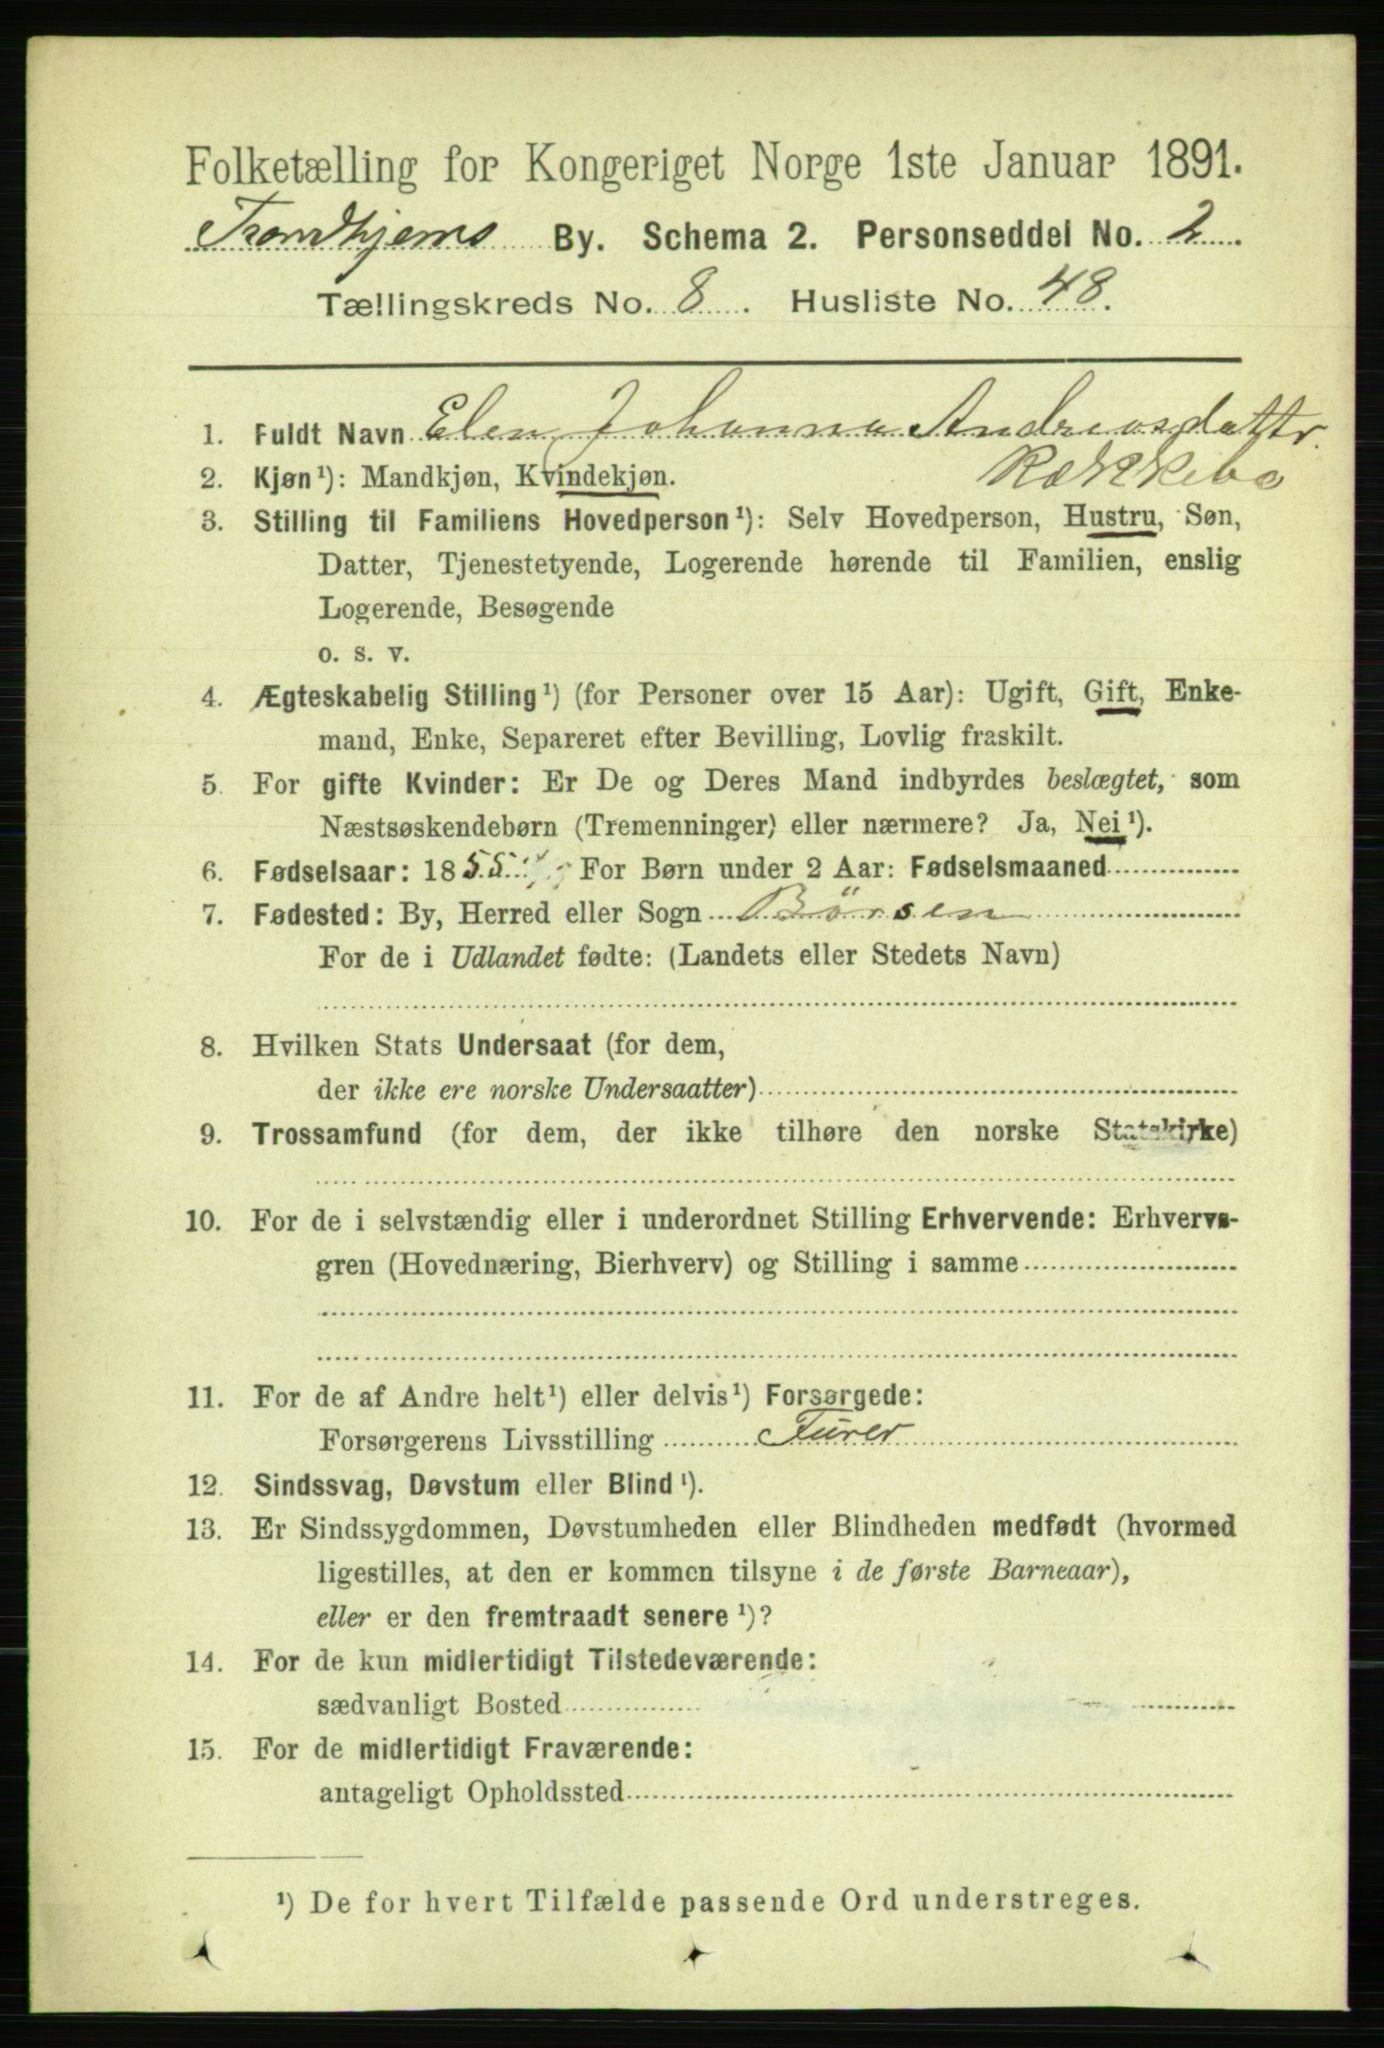 Folketælling for Kongeriget Norge 1ste Januar 1891.
Trondhjems By. Schema 2. Personseddel No. 2
Tællingskreds No. 8. Husliste No. 48.
1. Fuldt Navn Elen Johanna Andreasdattr.
Rækkebo
2. Kjøn¹): Mandkjøn, Kvindekjøn.
3. Stilling til Familiens Hovedperson¹): Selv Hovedperson, Hustru, Søn,
Datter, Tjenestetyende, Logerende hørende til Familien, enslig
Logerende, Besøgende
o. s. v.
4. Ægteskabelig Stilling¹) (for Personer over 15 Aar): Ugift, Gift, Enke-
mand, Enke, Separeret efter Bevilling, Lovlig fraskilt.
5. For gifte Kvinder: Er De og Deres Mand indbyrdes beslægtet, som
Næstsøskendebørn (Tremenninger) eller nærmere? Ja, Nei¹).
6. Fødselsaar: 1855 For Børn under 2 Aar: Fødselsmaaned
7. Fødested: By, Herred eller Sogn Börsen
For de i Udlandet fødte: (Landets eller Stedets Navn)
8. Hvilken Stats Undersaat (for dem,
der ikke ere norske Undersaatter)
9. Trossamfund (for dem, der ikke tilhøre den norske Statskirke)
10. For de i selvstændig eller i underordnet Stilling Erhvervende: Erhvervs-
gren (Hovednæring, Bierhverv) og Stilling i samme
11. For de af Andre helt¹) eller delvis¹) Forsørgede:
Forsørgerens Livsstilling Fürer
12. Sindssvag, Døvstum eller Blind¹).
13. Er Sindssygdommen, Døvstumheden eller Blindheden medfødt (hvormed
ligestilles, at den er kommen tilsyne i de første Barneaar),
eller er den fremtraadt senere¹)?
14. For de kun midlertidigt Tilstedeværende:
sædvanligt Bosted
15. For de midlertidigt Fraværende:
antageligt Opholdssted
¹) De for hvert Tilfælde passende Ord understreges.